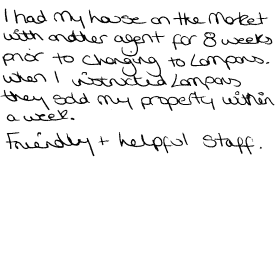 I had my house on the market
with another agent for 8 weeks
prior to changing to Lampons.
When I instructed Lampons
they sold my property within
a week.
Friendly + helpful staff.